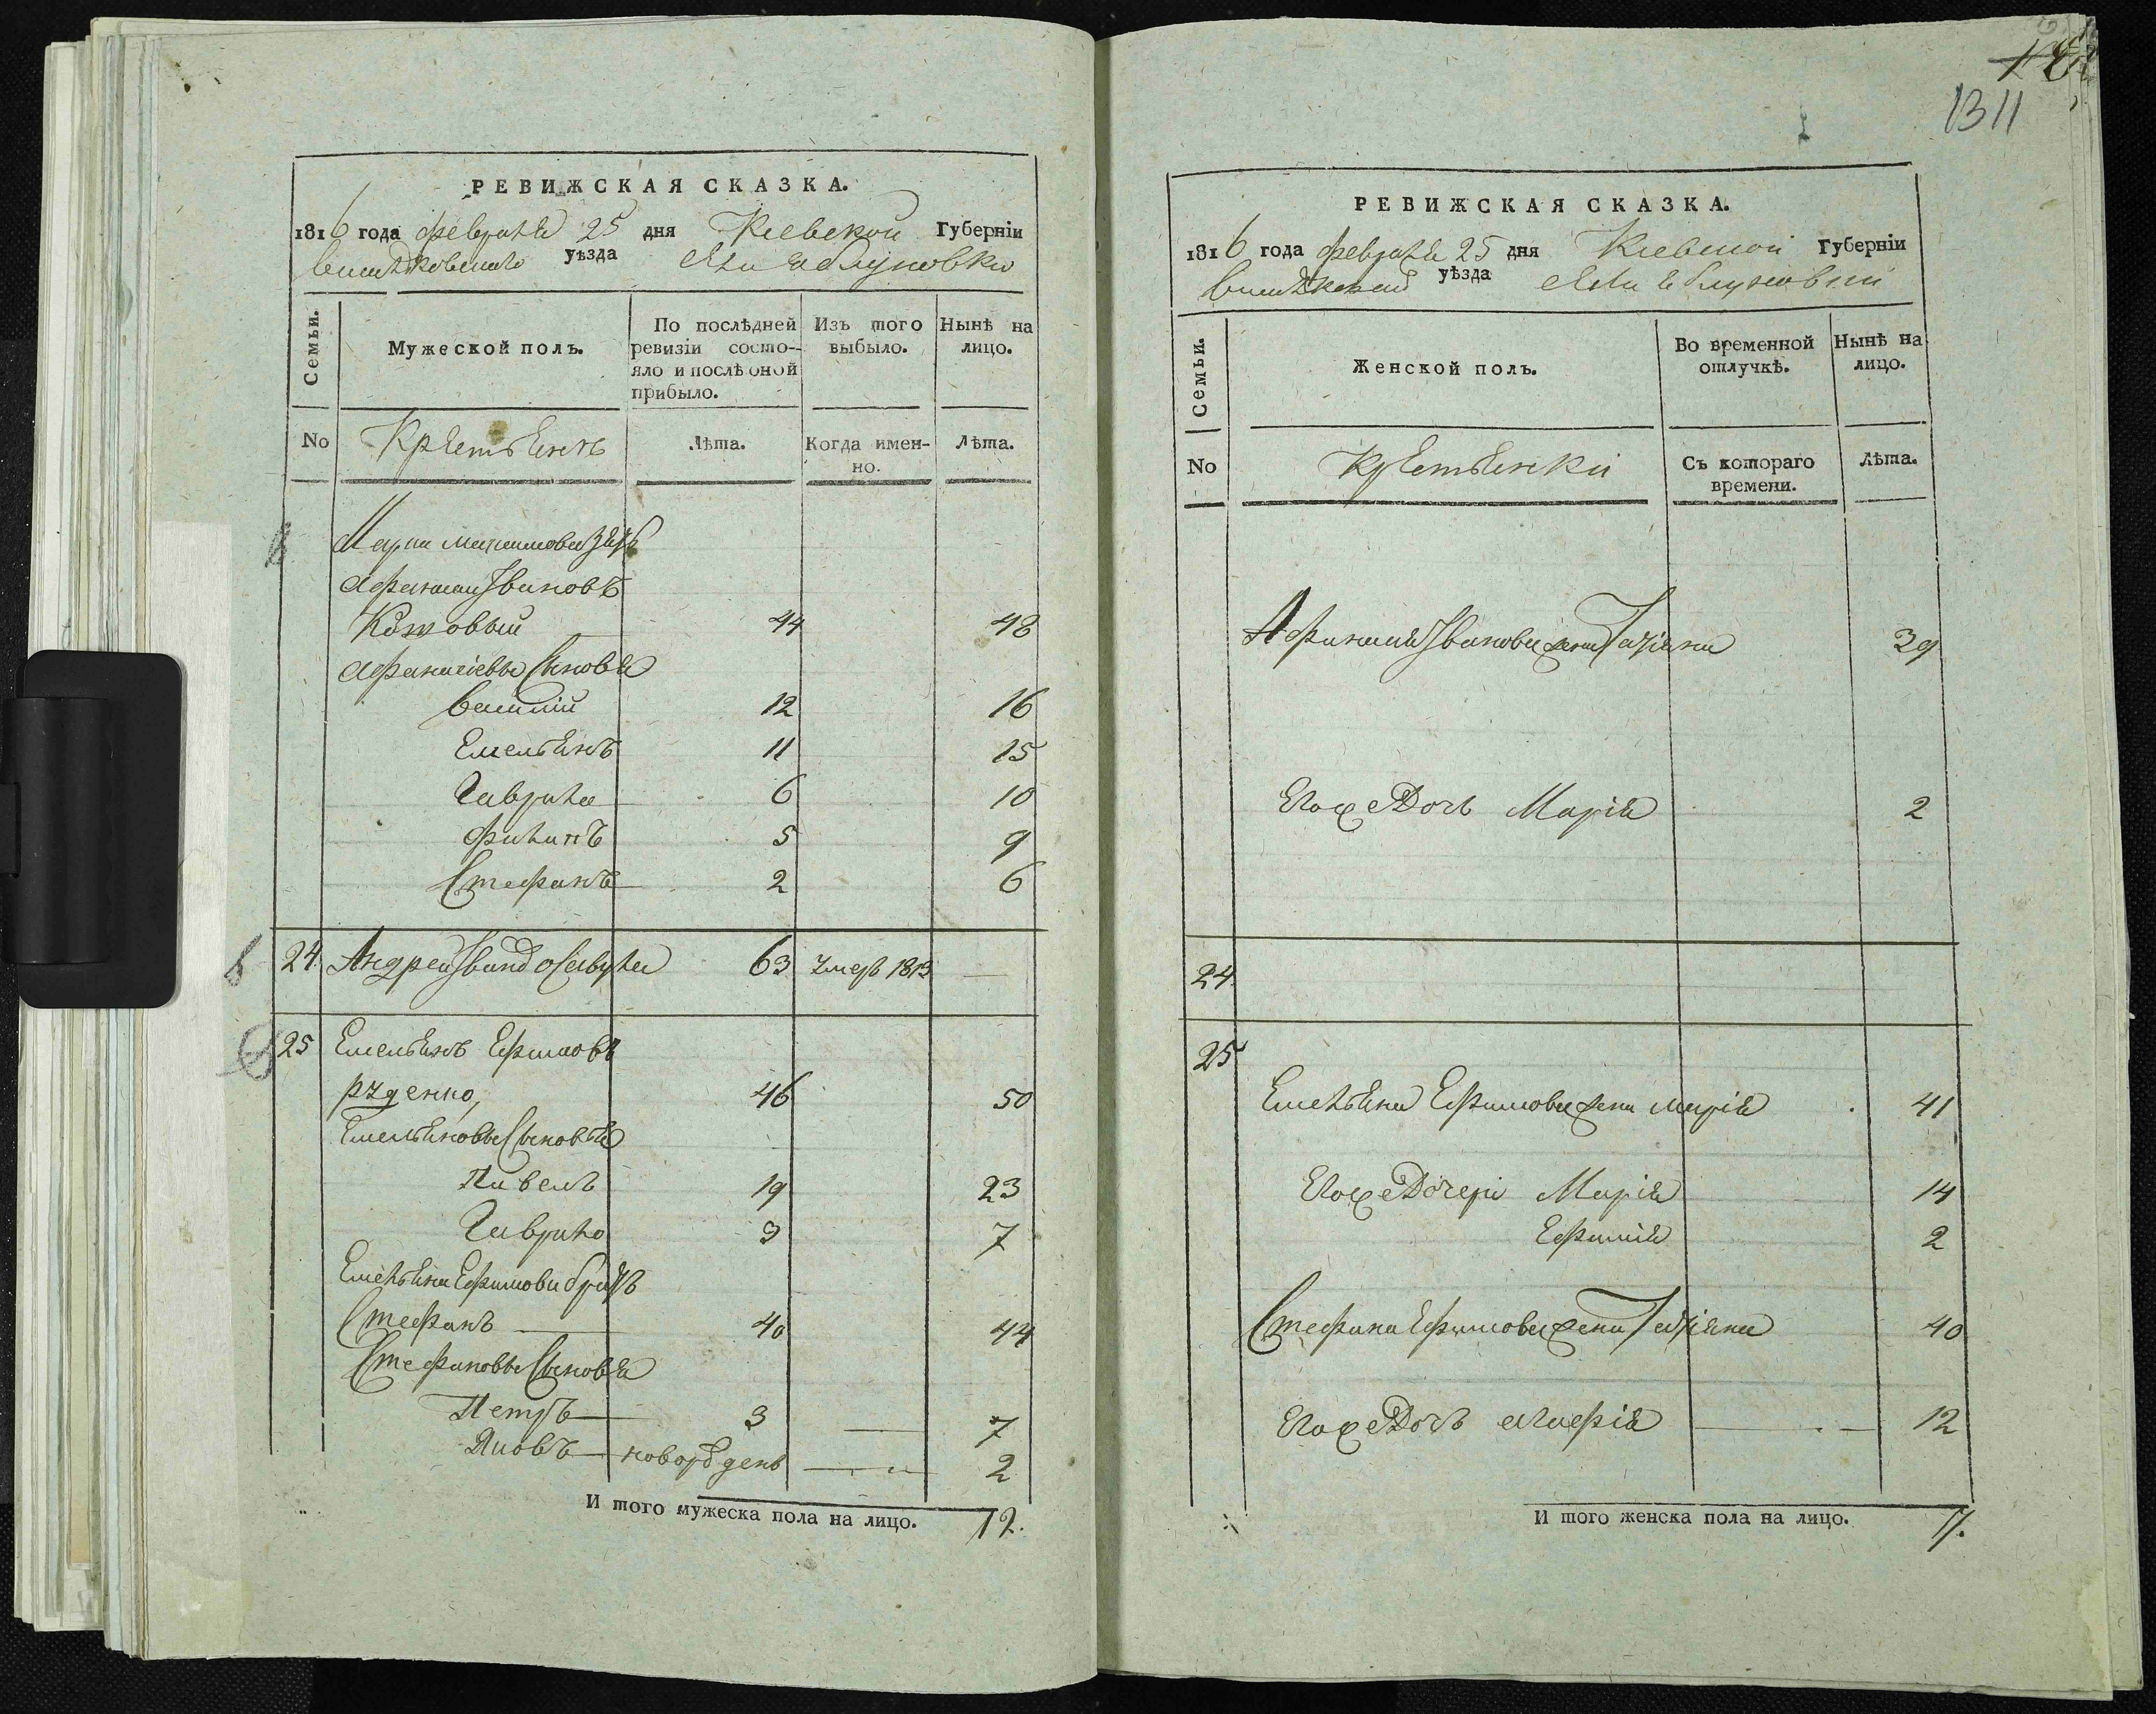 РЕВИЖСКАЯ СКАЗКА.
1816 года февраля 25 дня Киевской Губерніи
уѣзда
Семьи.
Мужеской полъ.
По послѣдней ревизіи состо-
яло и послѣ оной прибыло.
Изъ того выбыло.
Нынѣ на лицо.
No
Крестьянъ
Лѣта.
Когда имен-
но.
Лѣта.
Марка Максимова зять
Афанасий Ивановъ
44 48
Афанасіевы Сыновья
Василій 12 16
Емельянъ 11 15
Гаврила 6 10
Филипъ 5 9
Стефанъ 2 6
24. Андрей 63 умеръ 1813 —
25 Емельянъ Ефимовъ
руденко, 46 50
Емельяновы Сыновья
Павелъ 19 23
Гаврило 3 7
Емельяна Ефимова братъ
Стефанъ 40 44
Стефановы Сыновья
Петръ 3 — 7
Яковъ новорожденъ — 2
И того мужеска пола на лицо. 12.
1311
РЕВИЖСКАЯ СКАЗКА.
1816 года февраля 25 дня Киевской Губерніи
уѣзда
Семьи.
Женской полъ.
Во временной отлучкѣ.
Нынѣ на лицо.
No
Крестьянки
Съ котораго времени.
Лѣта.
Афанасия Иванова жена Татіяна 39
Егоже Дочь Марія 2
24.
25
Емельяна Ефимова жена Марія 41
Егоже Дочери Марія 14
Ефимія 2
Стефана Ефимова жена Татіяна 40
Егоже Дочь 12
И того женска пола на лицо. 7.